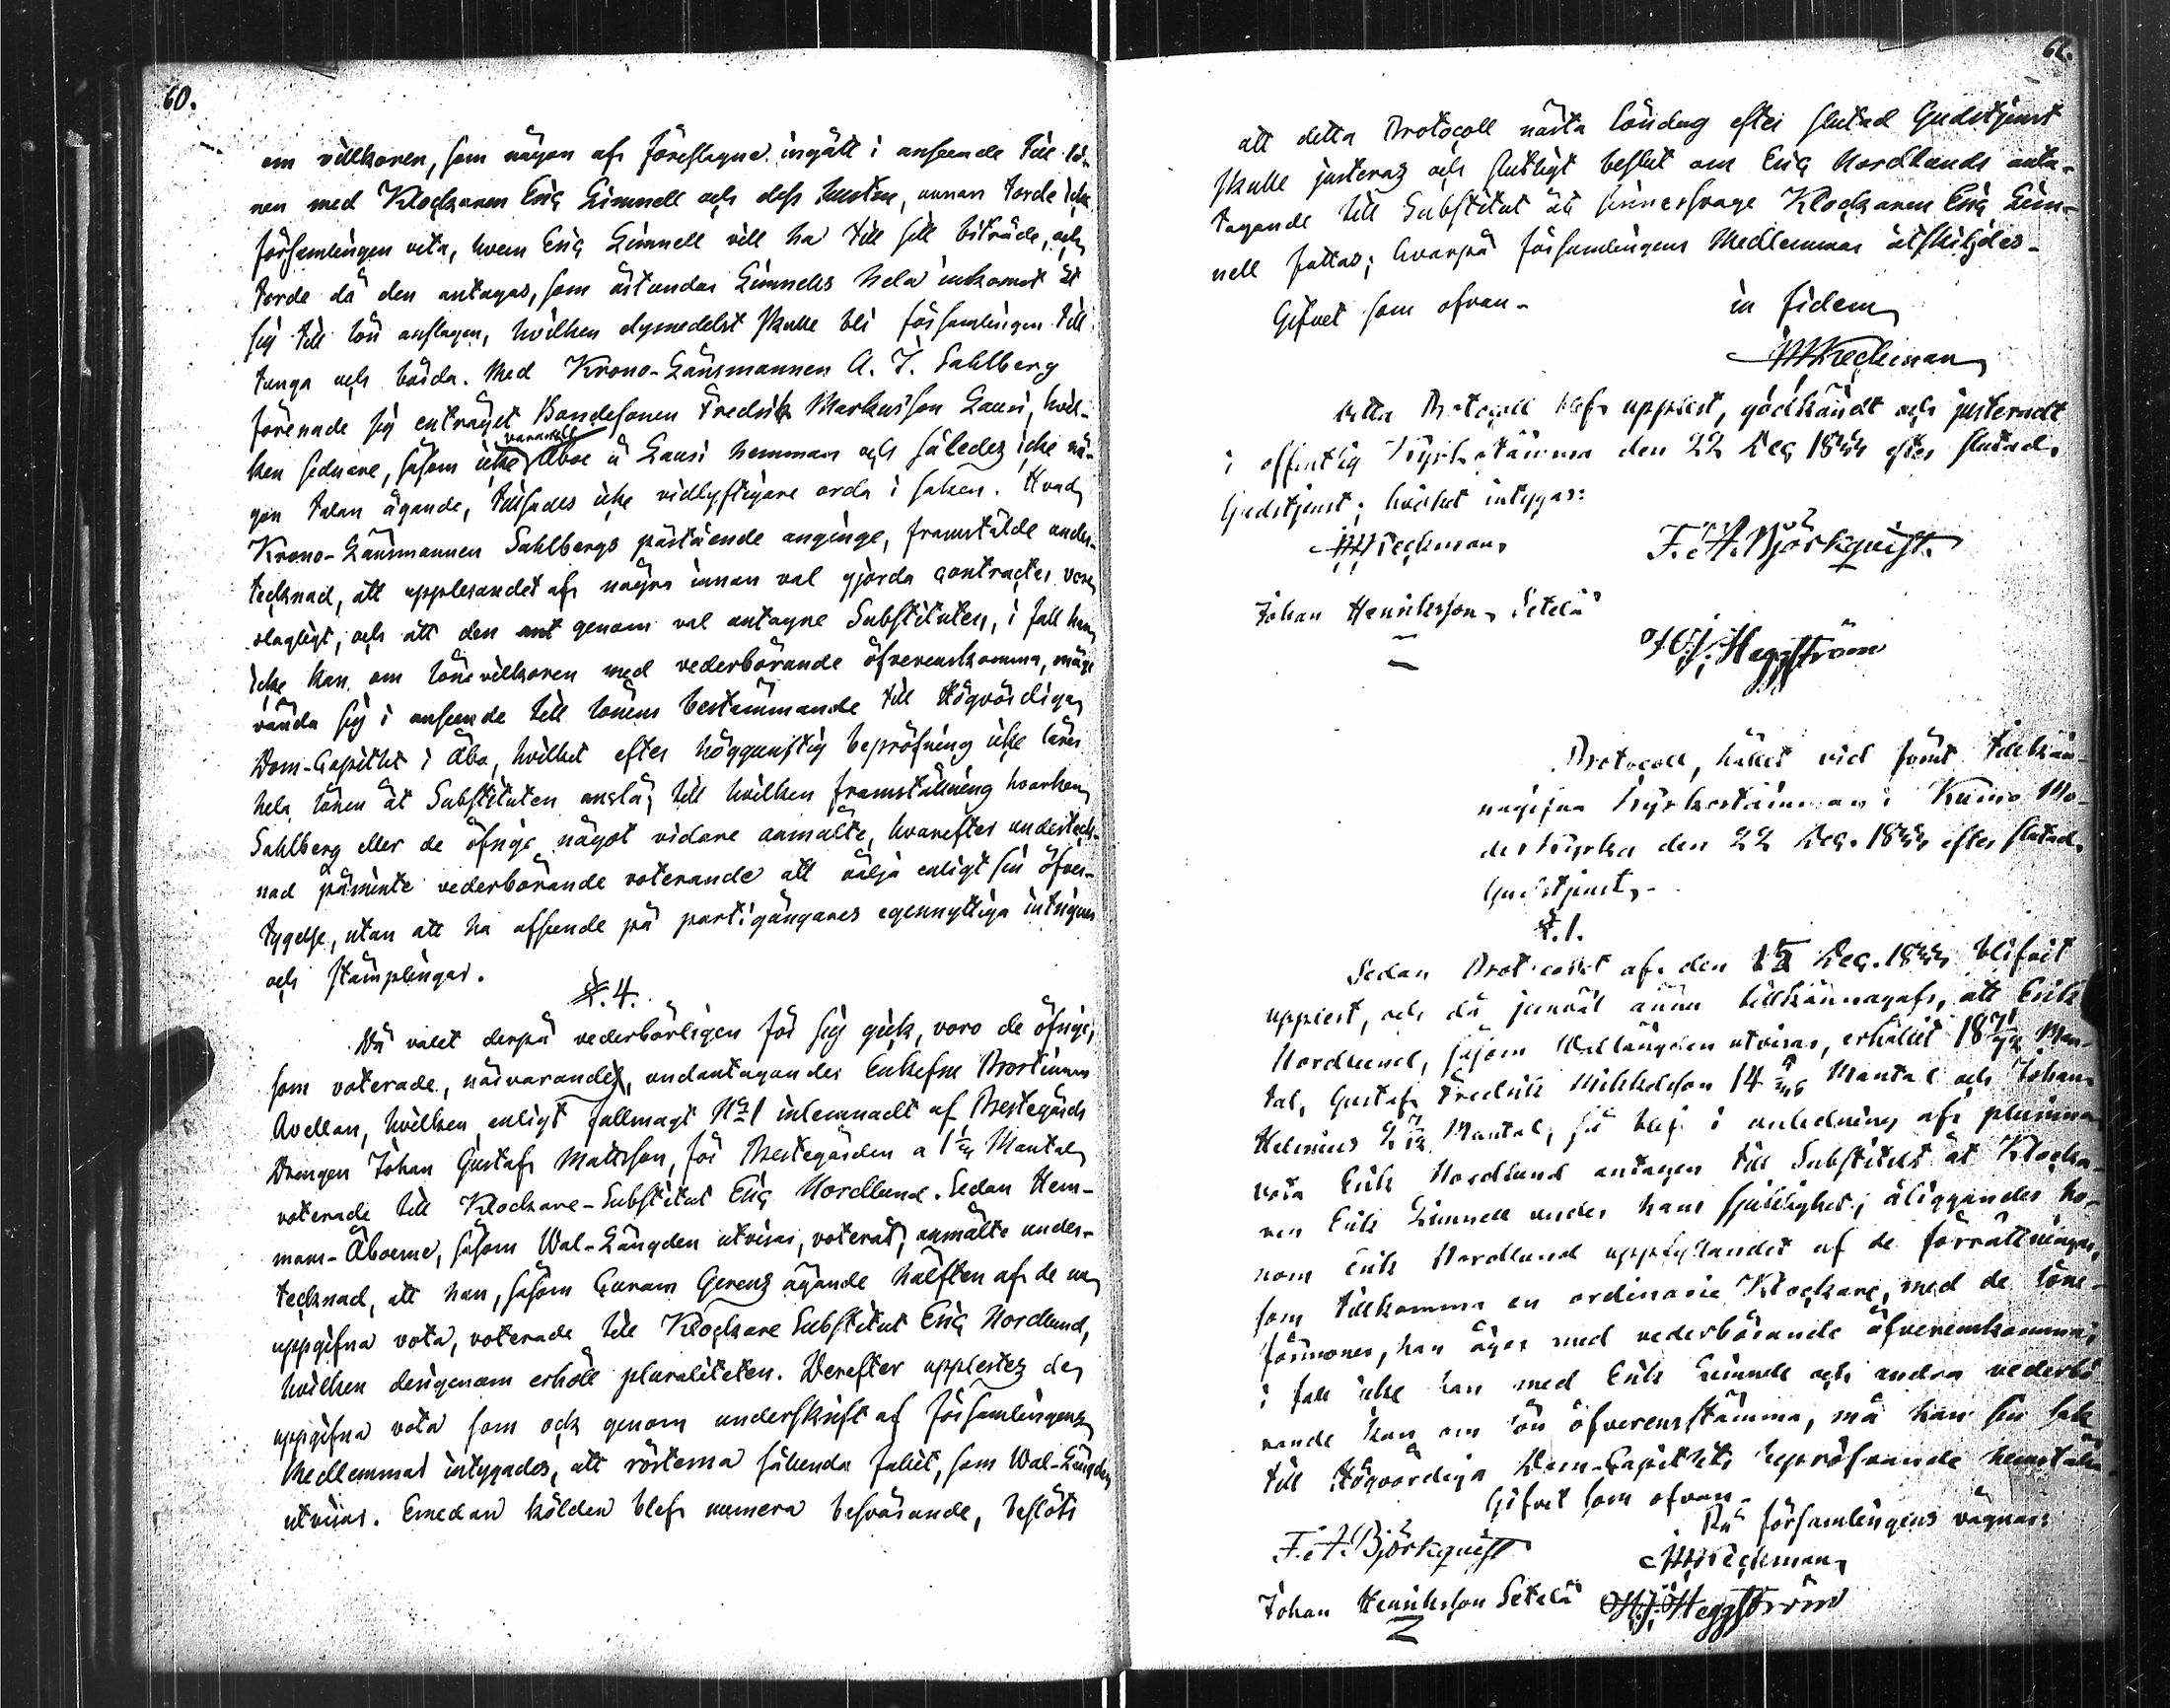 60.
om villkoren, som någon af föreslagne ingått i anseende till lö-
nen med Klockaren Eric Limnell och dess hustru, annan torde icke
församlingen veta, hvem Eric Limnell vill ha till sitt biträde, och
torde då den antagas, som åstundar Limnells hela inkomst åt
sig till lön anslagen, hvilken dymedelst skulle bli församlingen till
tunga och börda. Med Krono-Länsmannen A. I. Sahlberg
förenade sig enträget Bondesonen Fredrik Markusson Lausi, hvil-
ken sednare, såsom icke varande Åboe å Lausi hemman och således icke nå-
gon talan ägande, tillsades icke vidlyftigare orda i saken. Hvad
Krono-Länsmannen Sahlbergs påstående anginge, framstälde under-
tecknad, att uppläsandet af några innan val gjorda contracter vore
olagligt, och att den genom val antagne Substituten, i fall han
icke kan om lönevilkoren med vederbörande öfverenskomma, måge
vända sig i anseende till lönens bestämmande till Högvördiga
Dom-Capitlet i Åbo, hvilket efter höggunstig bepröfning icke lärer
hela lönen åt Substituten anslå; till hvilken framställning hvarken
Sahlberg eller de öfrige något vidare anmälte, hvarefter underteck-
nad påminte vederbörande voterande att välja enligt sin öfver-
tygelse, utan att ha afseende på partigångares egennyttiga intriguer
och stämplingar.
§. 4.
Då valet derpå vederbörligen för sig gick, voro de öfrige,
som voterade, närvarande, undantagandes Enkefru Prostinnan
Avellan, hvilken enligt fullmagt No 1 inlemnadt af Prestegårds
Drengen Johan Gustaf Mattsson, för Prestegården a 1 1/4 Mantal
voterade till Klockare-Substitut Eric Nordlund. Sedan Hem-
mans-Åboerne, såsom Wal-Längden utvisar, voterat, anmälte under-
tecknad, att han, såsom Curam Gerens ägande hälften af de nu
uppgifna vota, voterade till Klockare Substitut Eric Nordlund,
hvilken derigenom erhöll pluraliteten. Derefter upplästes de
uppgifna vota som ock genom underskrift af Församlingens
Medlemmar intygades, att rösterna sålunda fallit, som Wal-Längden
utvisar. Emedan kölden blef numera besvärande, beslöts
61.
att detta Protocoll nästa Söndag efter slutad Gudstjenst
skulle justeras och slutligt beslut om Eric Nordlunds anta-
gande till Substitut åt Klockaren Eric Lim-
nell fattas; hvarpå församlingens Medlemmar åtskiljdes.
Gifvet som ofvan.
in fidem
Detta Protocoll blef uppläst, godkändt och justeradt
i offentlig Kyrkostämma den 22 Dec 1844 efter slutad
Gudstjenst; hvilket intygas:
F. A. Björkquist.
Johan Henriksson Setelä
Heggström
Protocoll, hållet vid förut tillkän-
nagifven Kyrkostämman i Kumo Mo-
derkyrka den 22 Dec. 1844 efter slutad
Gudstjenst.
§. 1.
Sedan Protocollet af den 15 Dec. 1844 blifvit
uppläst, och då jemväl ännu tillkännagafs, att Erik
Nordlund, såsom Wallängden utvisar, erhållit Man-
tal, Gustaf Fredrik Mikkelsson Mantal och Johan
Helenius Mantal, så blef i anledning af plurima
vota Erik Nordlund antagen till Substitut åt Klocka-
ren Erik Limnell under hans sjuklighet; åliggandes ho-
nom Erik Nordlund uppfyllandet af de förrättningar,
som tillkomma en ordinarie Klockare, med de löne-
förmoner, han äger med vederbörande öfverenskomma;
i fall icke han med Erik Limnell och andra vederbö-
rande kan om lön öfverensstämma, må han sin sak
till Högvördiga Dom-Capitlets bepröfvande hemställa
Gifvet som ofvan.
På församlingens vägnar:
F. A. Björkquist
Johan Henriksson Setelä
Heggström